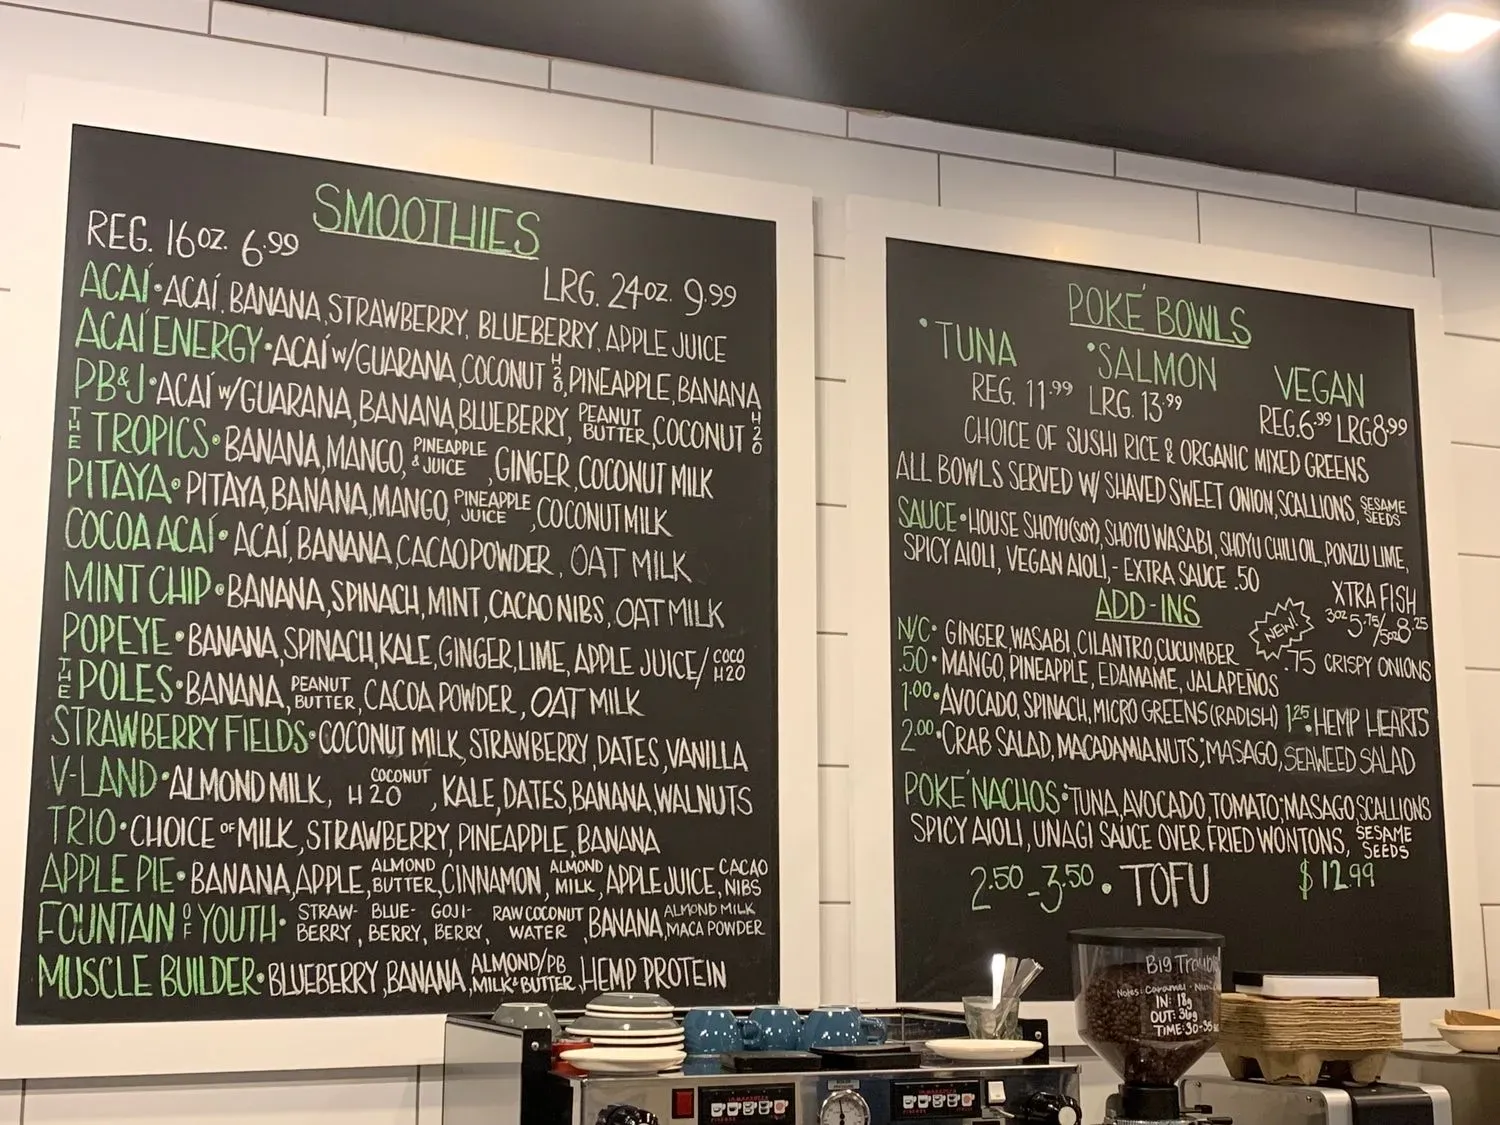 SMOOTHIES
REG. 16OZ. 6.99
LRG. 24OZ. 9.99
ACAÍ • ACAÍ, BANANA, STRAWBERRY, BLUEBERRY, APPLE JUICE
ACAÍ ENERGY • ACAÍ W/GUARANA, COCONUT H2O, PINEAPPLE, BANANA
PB&J • ACAÍ W/GUARANA, BANANA, BLUEBERRY, PEANUT BUTTER, COCONUT H2O
THE TROPICS • BANANA, MANGO, PINEAPPLE & JUICE, GINGER, COCONUT MILK
PITAYA • PITAYA, BANANA, MANGO, PINEAPPLE JUICE, COCONUT MILK
COCOA ACAÍ • ACAÍ, BANANA, CACAO POWDER, OAT MILK
MINT CHIP • BANANA, SPINACH, MINT, CACAO NIBS, OAT MILK
POPEYE • BANANA, SPINACH, KALE, GINGER, LIME, APPLE JUICE/ COCO H2O
THE POLES • BANANA, PEANUT BUTTER, CACOA POWDER, OAT MILK
STRAWBERRY FIELDS • COCONUT MILK, STRAWBERRY, DATES, VANILLA
V-LAND • ALMOND MILK, COCONUT H2O, KALE, DATES, BANANA, WALNUTS
TRIO • CHOICE OF MILK, STRAWBERRY, PINEAPPLE, BANANA
APPLE PIE • BANANA, APPLE, ALMOND BUTTER, CINNAMON, ALMOND MILK, APPLE JUICE, CACAO NIBS
FOUNTAIN OF YOUTH • STRAW-BERRY, BLUE-BERRY, GOJI-BERRY, RAW COCONUT WATER, BANANA, ALMOND MILK MACA POWDER
MUSCLE BUILDER • BLUEBERRY, BANANA, ALMOND/PB MILK & BUTTER, HEMP PROTEIN
POKÉ BOWLS
• TUNA • SALMON VEGAN
REG. 11.99 LRG. 13.99 REG. 6.99 LRG 8.99
CHOICE OF SUSHI RICE & ORGANIC MIXED GREENS
ALL BOWLS SERVED W/ SHAVED SWEET ONION, SCALLIONS, SESAME SEEDS
SAUCE • HOUSE SHOYU (SOY), SHOYU WASABI, SHOYU CHILI OIL, PONZU LIME,
SPICY AIOLI, VEGAN AIOLI, - EXTRA SAUCE .50
ADD-INS
XTRA FISH
3OZ 5.75/5OZ 8.25
N/C • GINGER, WASABI, CILANTRO, CUCUMBER
NEW! .75 CRISPY ONIONS
.50 • MANGO, PINEAPPLE, EDAMAME, JALAPEÑOS
1.00 • AVOCADO, SPINACH, MICRO GREENS (RADISH) 1.25 • HEMP HEARTS
2.00 • CRAB SALAD, MACADAMIA NUTS, MASAGO, SEAWEED SALAD
POKÉ NACHOS • TUNA, AVOCADO, TOMATO, MASAGO, SCALLIONS
SPICY AIOLI, UNAGI SAUCE OVER FRIED WONTONS, SESAME SEEDS
2.50 - 3.50 • TOFU $12.99
Big
Notes: Caramel
IN: 18g
OUT: 36g
TIME: 30-35